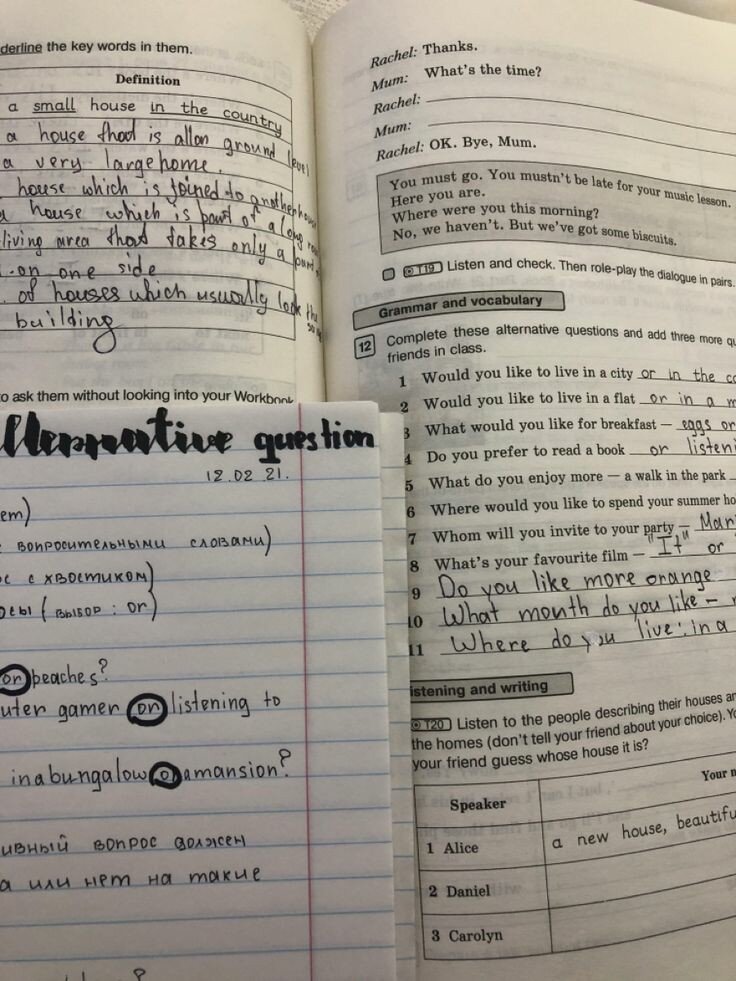 derline the key words in them.
Definition
a small house in the country
a house that is all on ground level
a very large home.
house which is joined to another house
a house which is part of a long
living area that takes only a part
on one side
of houses which usually look the
building
to ask them without looking into your Workbook
Alternative question
12.02.21.
ем)
с вопросительными словами)
ос с хвостиком)
осы (выбор: or)
or peaches?
uter gamer or listening to
in a bungalow or a mansion?
ивный вопрос должен
а или нет на такие
Rachel: Thanks.
Mum: What's the time?
Rachel:
Mum:
Rachel: OK. Bye, Mum.
You must go. You mustn't be late for your music lesson.
Here you are.
Where were you this morning?
No, we haven't. But we've got some biscuits.
T19 Listen and check. Then role-play the dialogue in pairs.
Grammar and vocabulary
12 Complete these alternative questions and add three more qu
friends in class.
1 Would you like to live in a city or in the co
2 Would you like to live in a flat or in a m
3 What would you like for breakfast – eggs or
4 Do you prefer to read a book or listeni
5 What do you enjoy more – a walk in the park
6 Where would you like to spend your summer ho
7 Whom will you invite to your party – Mar
8 What's your favourite film – "It" or
9 Do you like more orange
10 What month do you like –
11 Where do you live: in a
istening and writing
T20 Listen to the people describing their houses an
the homes (don't tell your friend about your choice). Yo
your friend guess whose house it is?
Speaker Your n
1 Alice a new house, beautifu
2 Daniel
3 Carolyn